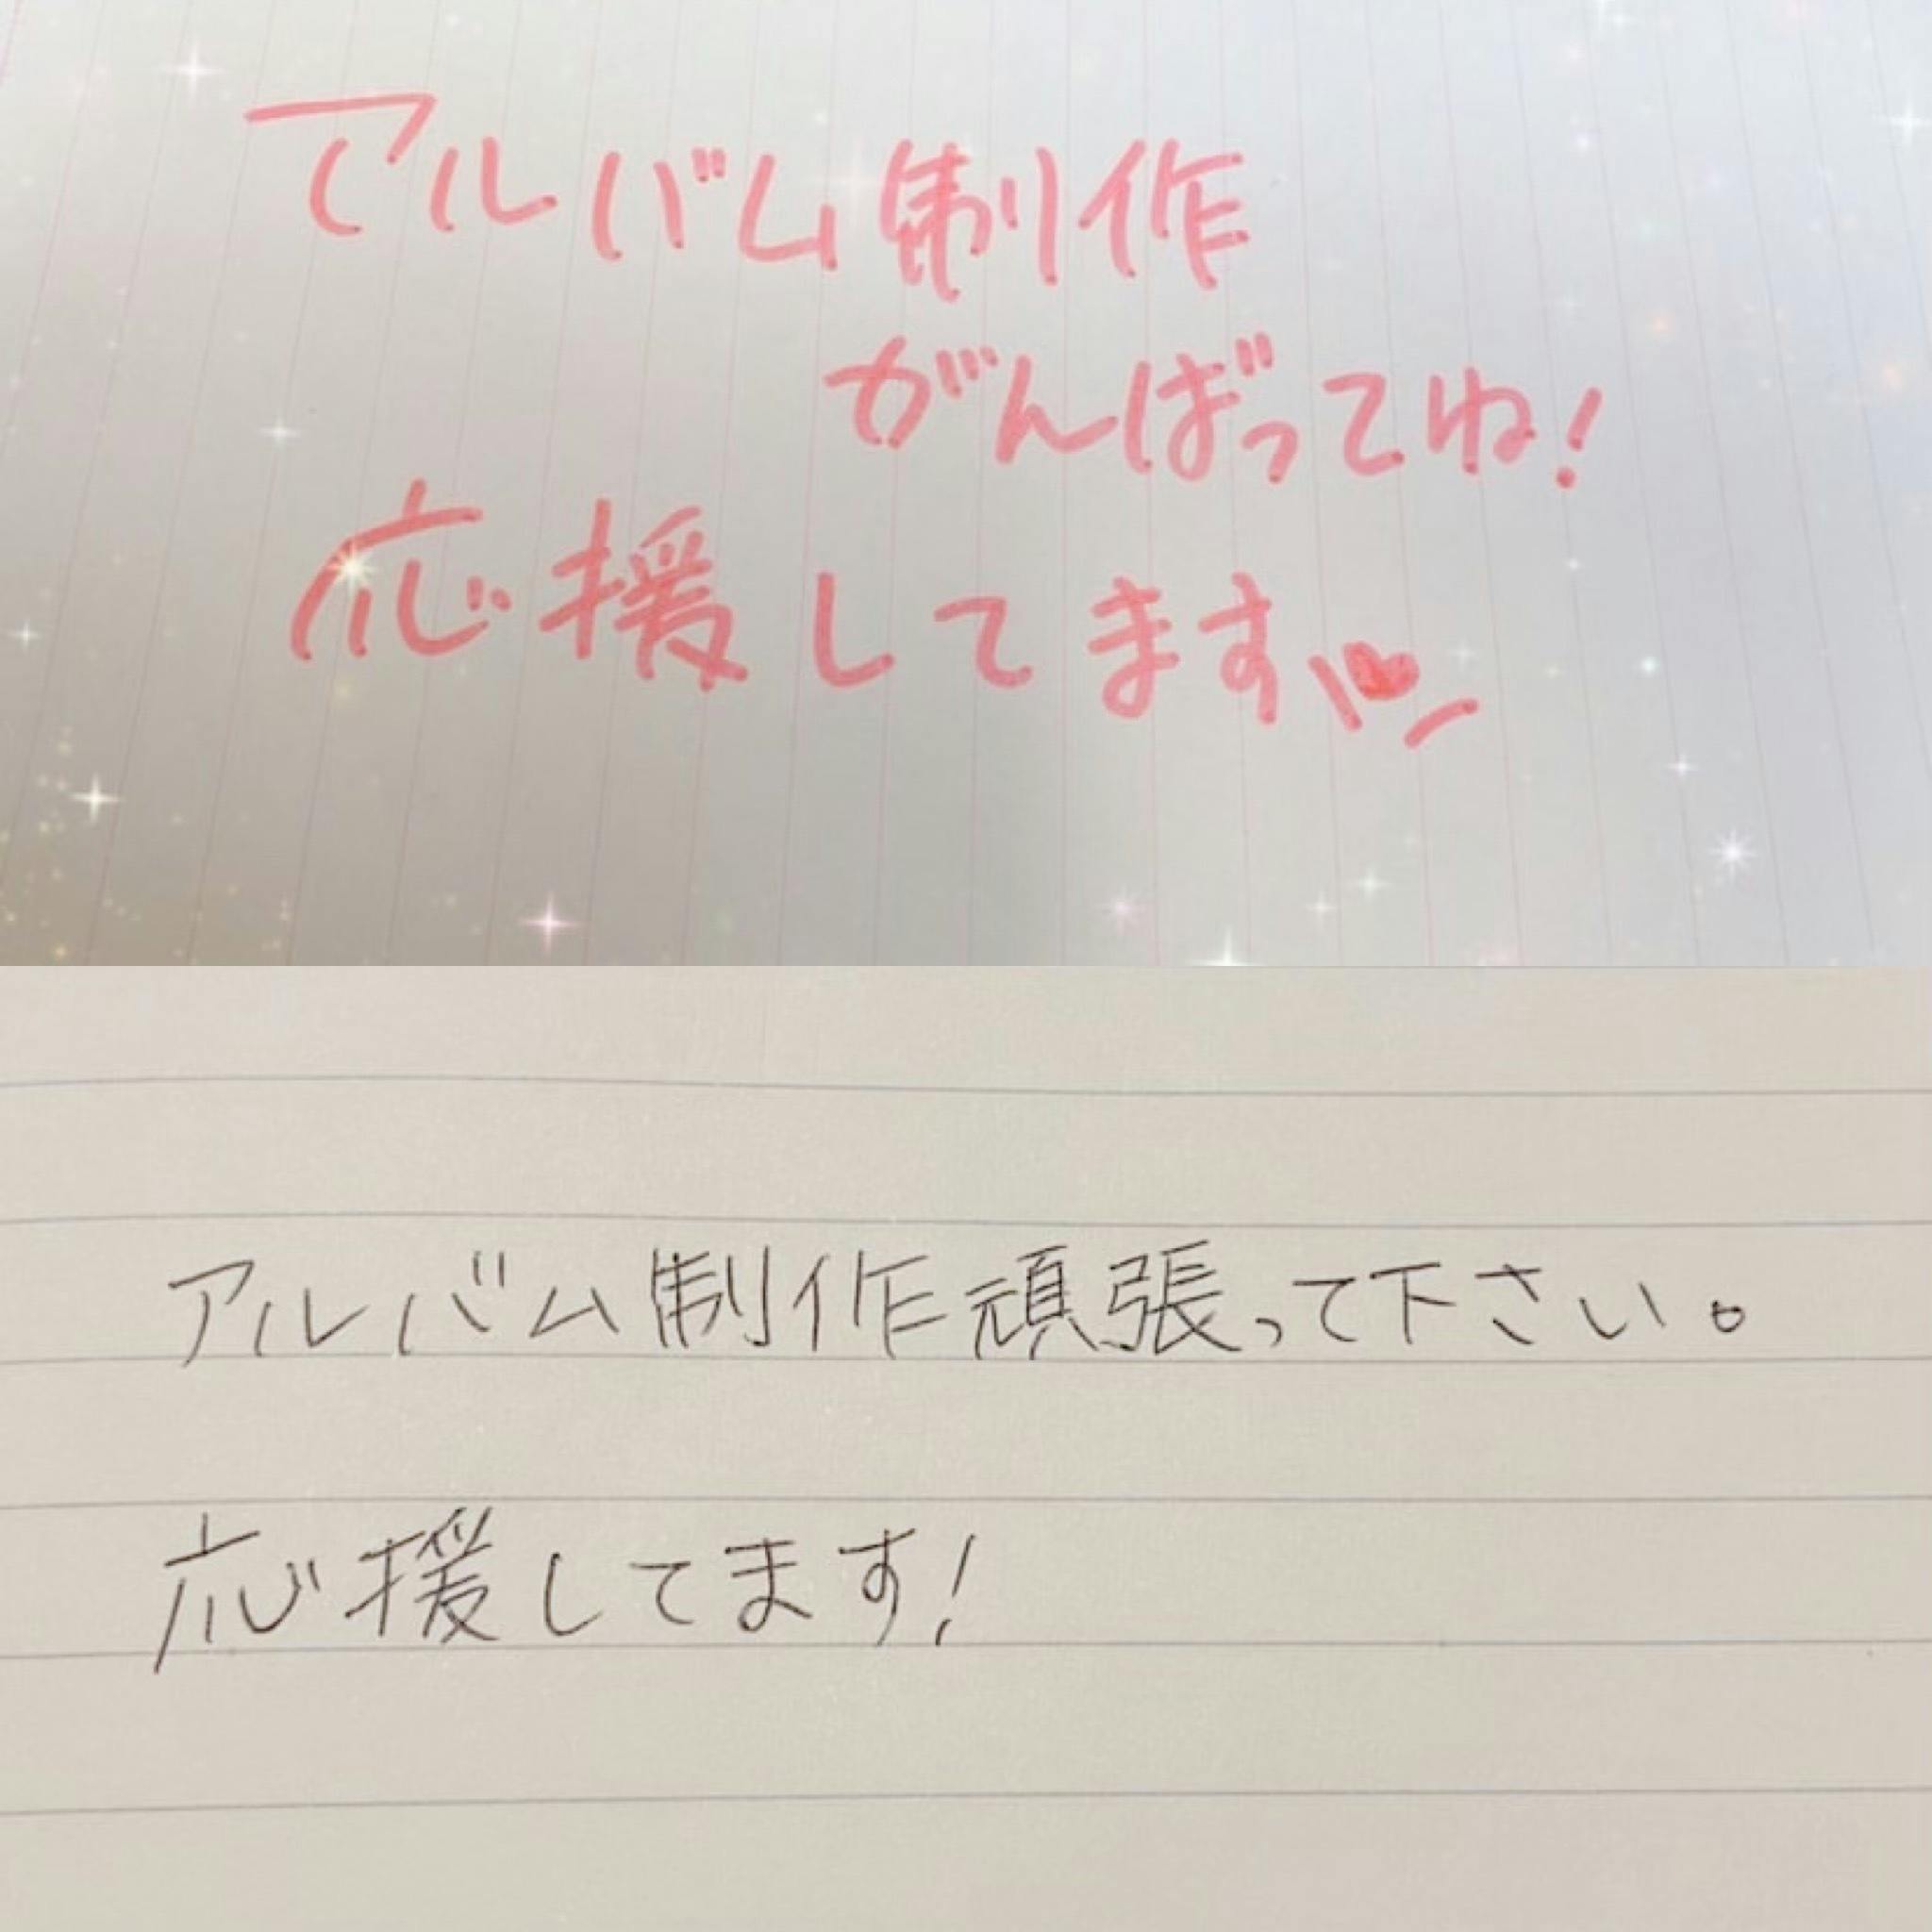 アルバム制作
がんばってね!
応援してます♥
アルバム制作頑張って下さい。
応援してます!